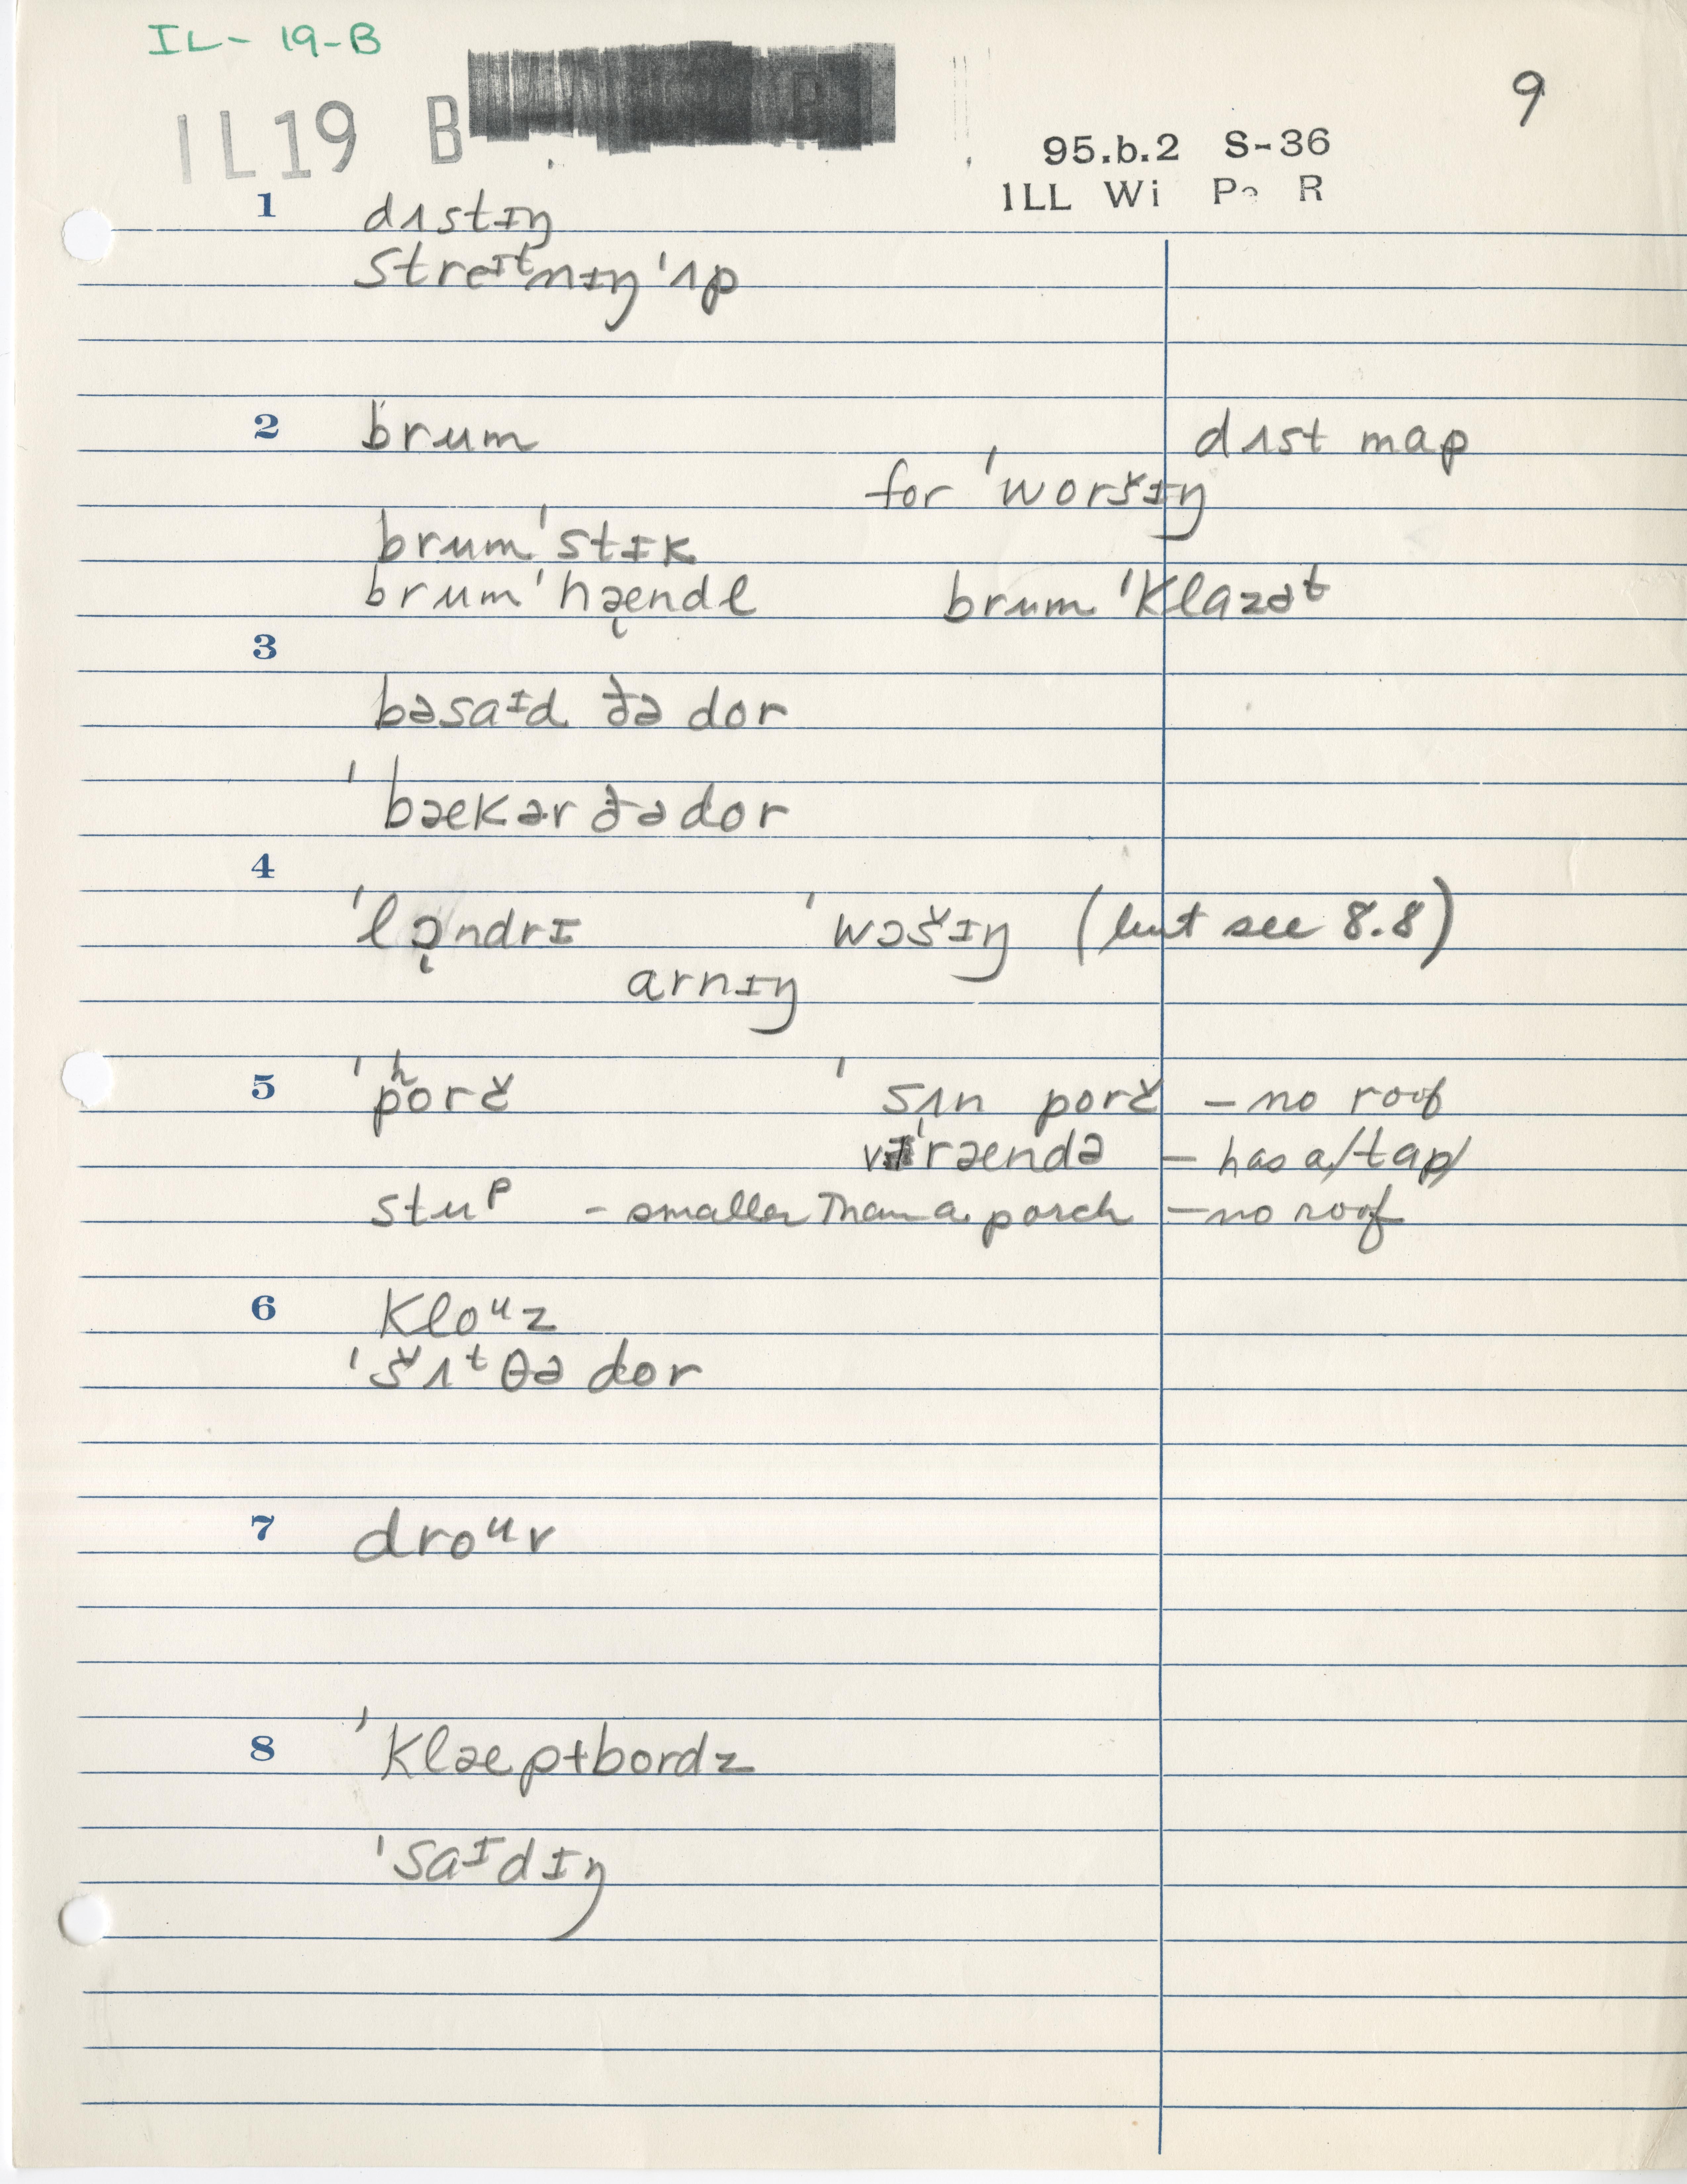 IL-19-B
9
IL19 B
95.b.2 S-36
ILL Wi Pe R
1 dʌstɪŋ
streɪtnɪŋ'ʌp
2 brum dʌst map
for 'woršɪŋ
brum'stɪk
brum'hæ̨ndl brum 'klazət
3
bəsaɪd ðə dor
'bækər ðə dor
4
'lɔ̨ndrɪ 'wɔšɪŋ (but see 8.8)
arnɪŋ
5 'pʰorč 'sʌn porč - no roof
və'rændə - has a /tap/
stuᵖ - smaller than a porch - no roof
6 kloᵘz
'šʌᵗ θə dor
7 droᵘr
8 'klæptbordz
'saɪdɪŋ